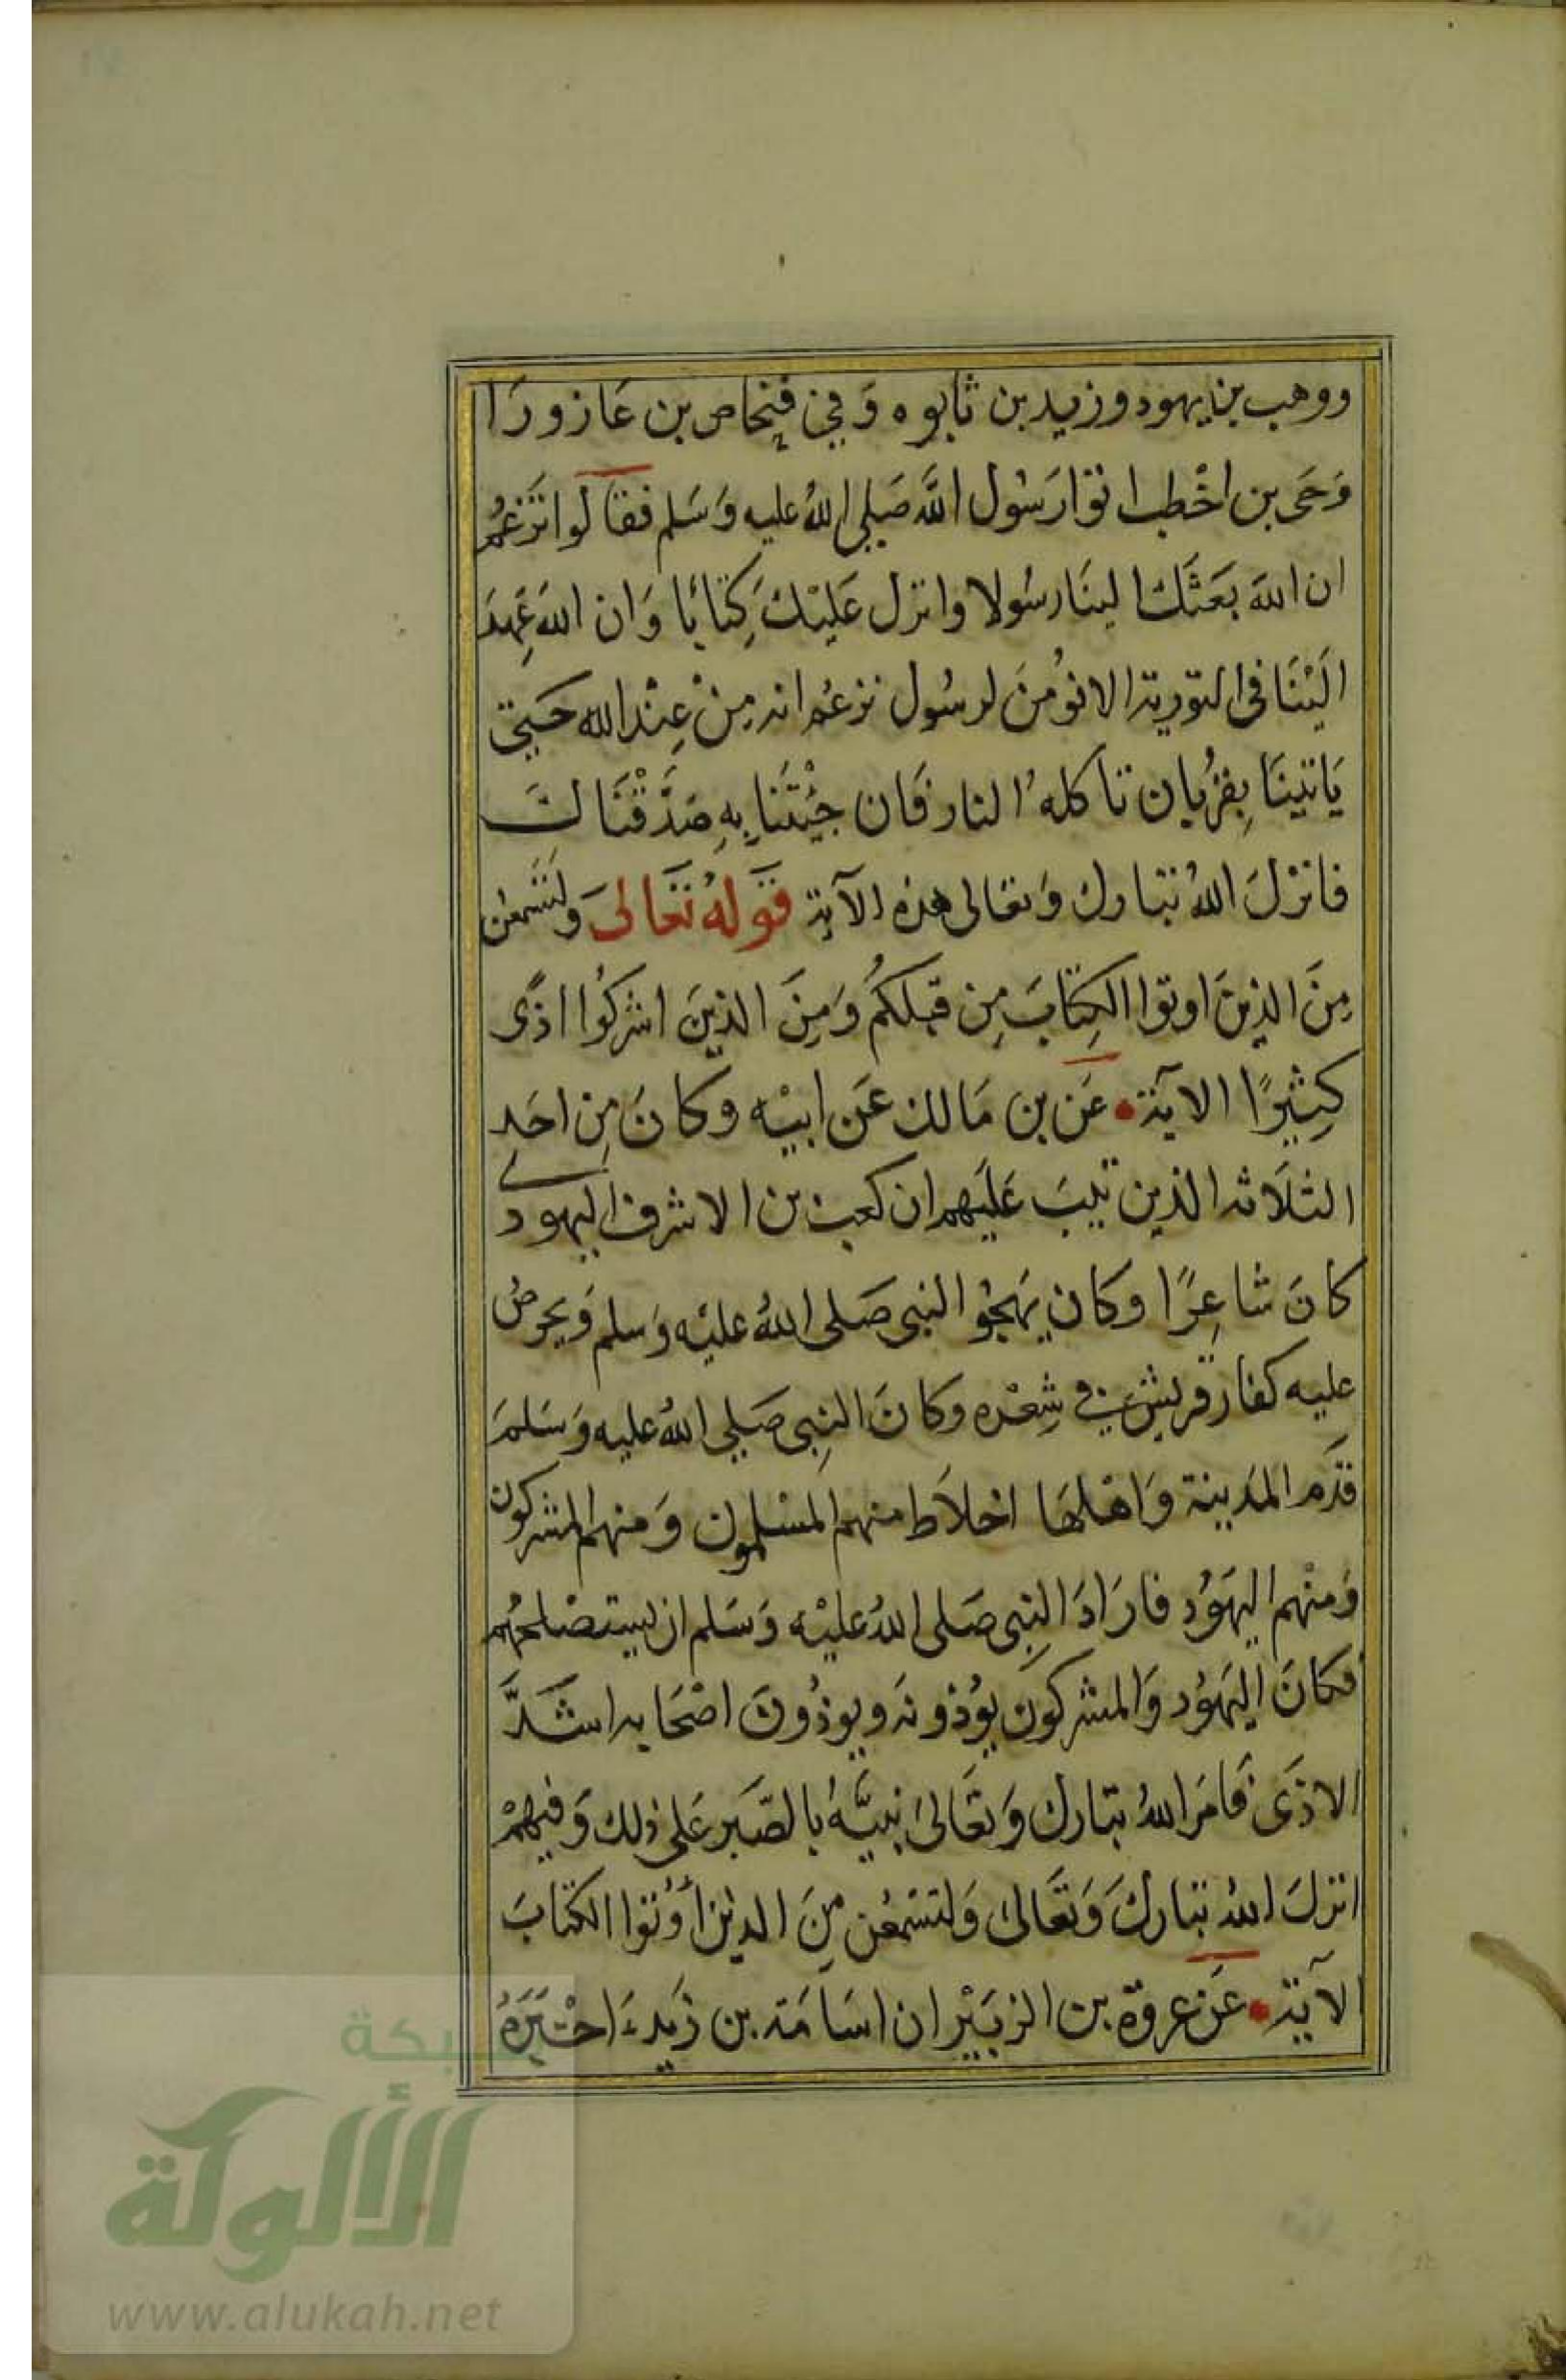 ووهب بن يهود وزيد بن تابوه وَفي فِنحاص بن عَازورَا
وَحَى بن اخْطب اتوا رَسُول اللَّه صَلى اللهُ عليه وَسَلم فقالوا تَزعُمُ
ان اللهَ بَعَثَكَ الينَا رسُولا وانزل عَليْكَ كِتابًا وَان اللهَ عَهِدَ
اليْنَا في التورية الا نؤمنَ لرسُول نزعُم انه مِنْ عِنْد الله حَتي
يَاتينَا بِقرُبان تاكله النار فَان جئْتَنَا بِهِ صَدَّقْنَاكَ
فانزَلَ اللهُ تبارك وَتعَالى هذه الآية قَولهُ تَعَالىَ وَلتَسْمَعُن
مِنَ الذينَ اوتوا الكِتَابَ مِن قبلكُم وَمِنَ الذينَ اشركُوا اذًى
كثِيرًا الآية عَن بن مَالك عَن ابيْه وكانَ مِن احَد
الثلاثة الذين تيبَ عَليَهم ان كعب بن الاشرف اليهودي
كانَ شاعِرًا وكان يَهجُو النبي صَلى اللهُ عليْه وَسلم وَيحرضُ
عليه كفار قريش في شِعْره وكانَ النبِي صَلي اللهُ عليه وَسَلمَ
قدَم المَدينة وَاهْلهَا اخلاَط منهم المسْلمون وَمنهم المشركون
وَمنْهم اليهَوُد فارَادَ النبِي صَلى اللهُ عليْه وَسَلم ان يستصْلحهُم
فكانَ اليَهَوُد وَالمشركونَ يؤُذونه ويوذُونَ اصْحَابه اشَدَّ
الاذَى فَامَرَ اللهُ تبارك وَتعَالىَ نبيَّهُ بالصَّبَر عَلى ذلك وَفيهمْ
انزلَ اللهُ تبَاركَ وَتعَالىَ وَلتسْمعُن مِنَ الذين أوُتوا الكتابَ
الآية عَن عروة بن الزبَيْر ان اسَامَة بن زَيد اخْبَرَهُ
شبكة
الألوكة
www.alukah.net